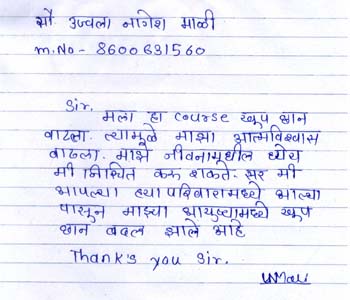 सौ. उज्वला नागेश माळी
m.No - 8600631560
Sir.
मला हा course खूप छान
वाटला. त्यामूळे माझा आत्मविश्वास
वाढला. माझे जीवनामधील ध्येय
मी निश्चित करू शकले. सर मी
आपल्या ह्या परिवारामध्ये आल्या
पासून माझ्या आयुष्यामध्ये खूप
छान बदल झाले आहे
Thanks you Sir.
UMali